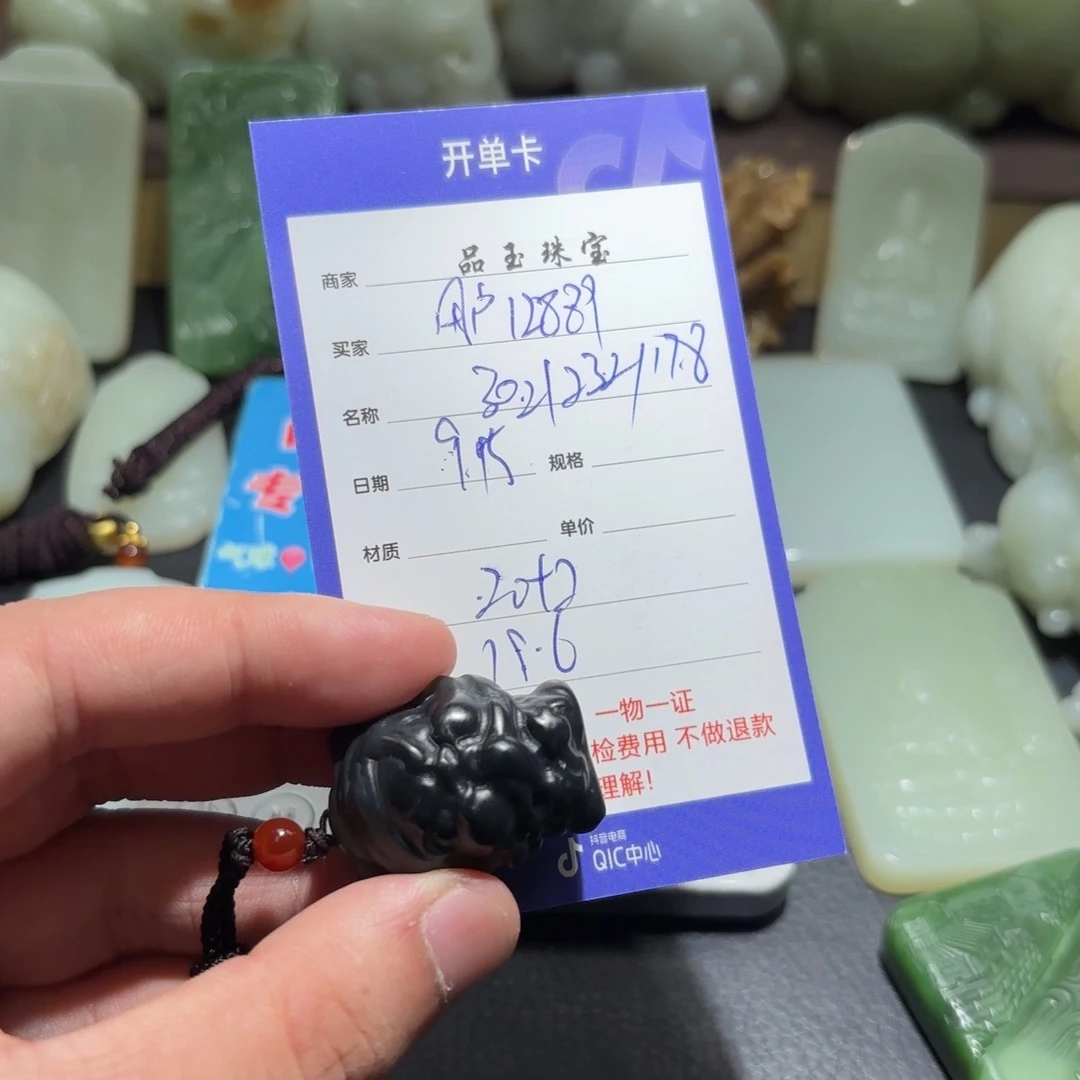 开单卡
商家 品玉珠宝
买家 用户12889
名称 30.2/23.2/17.8
日期 9.15 规格
材质 单价
20+2
15.6
一物一证
检费用 不做退款
理解！
抖音电商
QIC中心